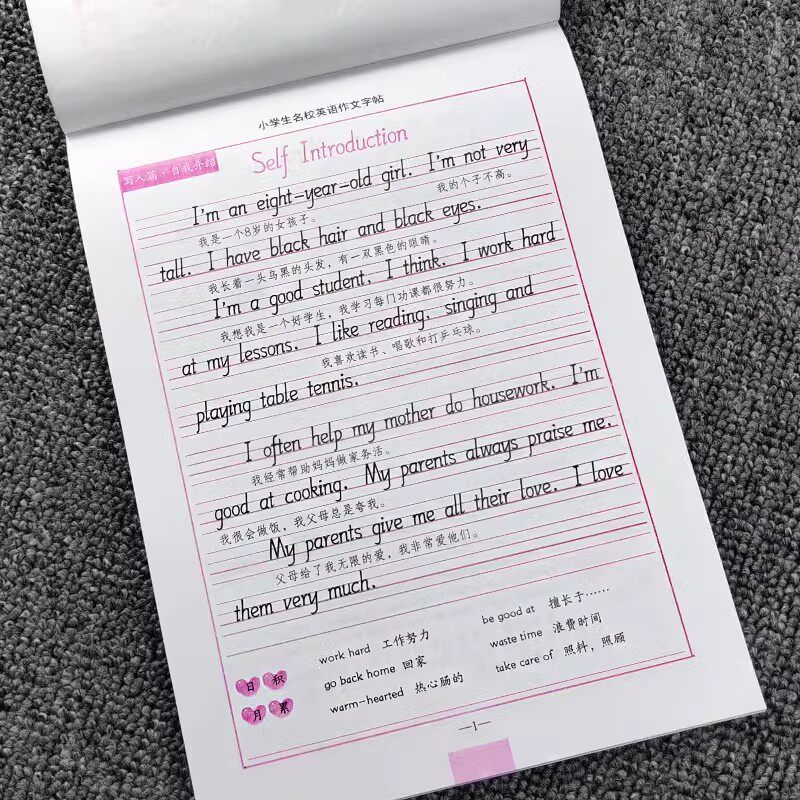 小学生名校英语作文字帖
写人篇·自我介绍
Self Introduction
I'm an eight-year-old girl. I'm not very
我是一个8岁的女孩子。 我的个子不高。
tall. I have black hair and black eyes.
我长着一头乌黑的头发，有一双黑色的眼睛。
I'm a good student, I think. I work hard
我想我是一个好学生，我学习每门功课都很努力。
at my lessons. I like reading, singing and
我喜欢读书、唱歌和打乒乓球。
playing table tennis.
I often help my mother do housework. I'm
我经常帮助妈妈做家务活。
good at cooking. My parents always praise me.
我很会做饭，我父母总是夸我。
My parents give me all their love. I love
父母给了我无限的爱，我非常爱他们。
them very much.
日积
月累
work hard 工作努力
go back home 回家
warm-hearted 热心肠的
be good at 擅长于……
waste time 浪费时间
take care of 照料，照顾
—1—